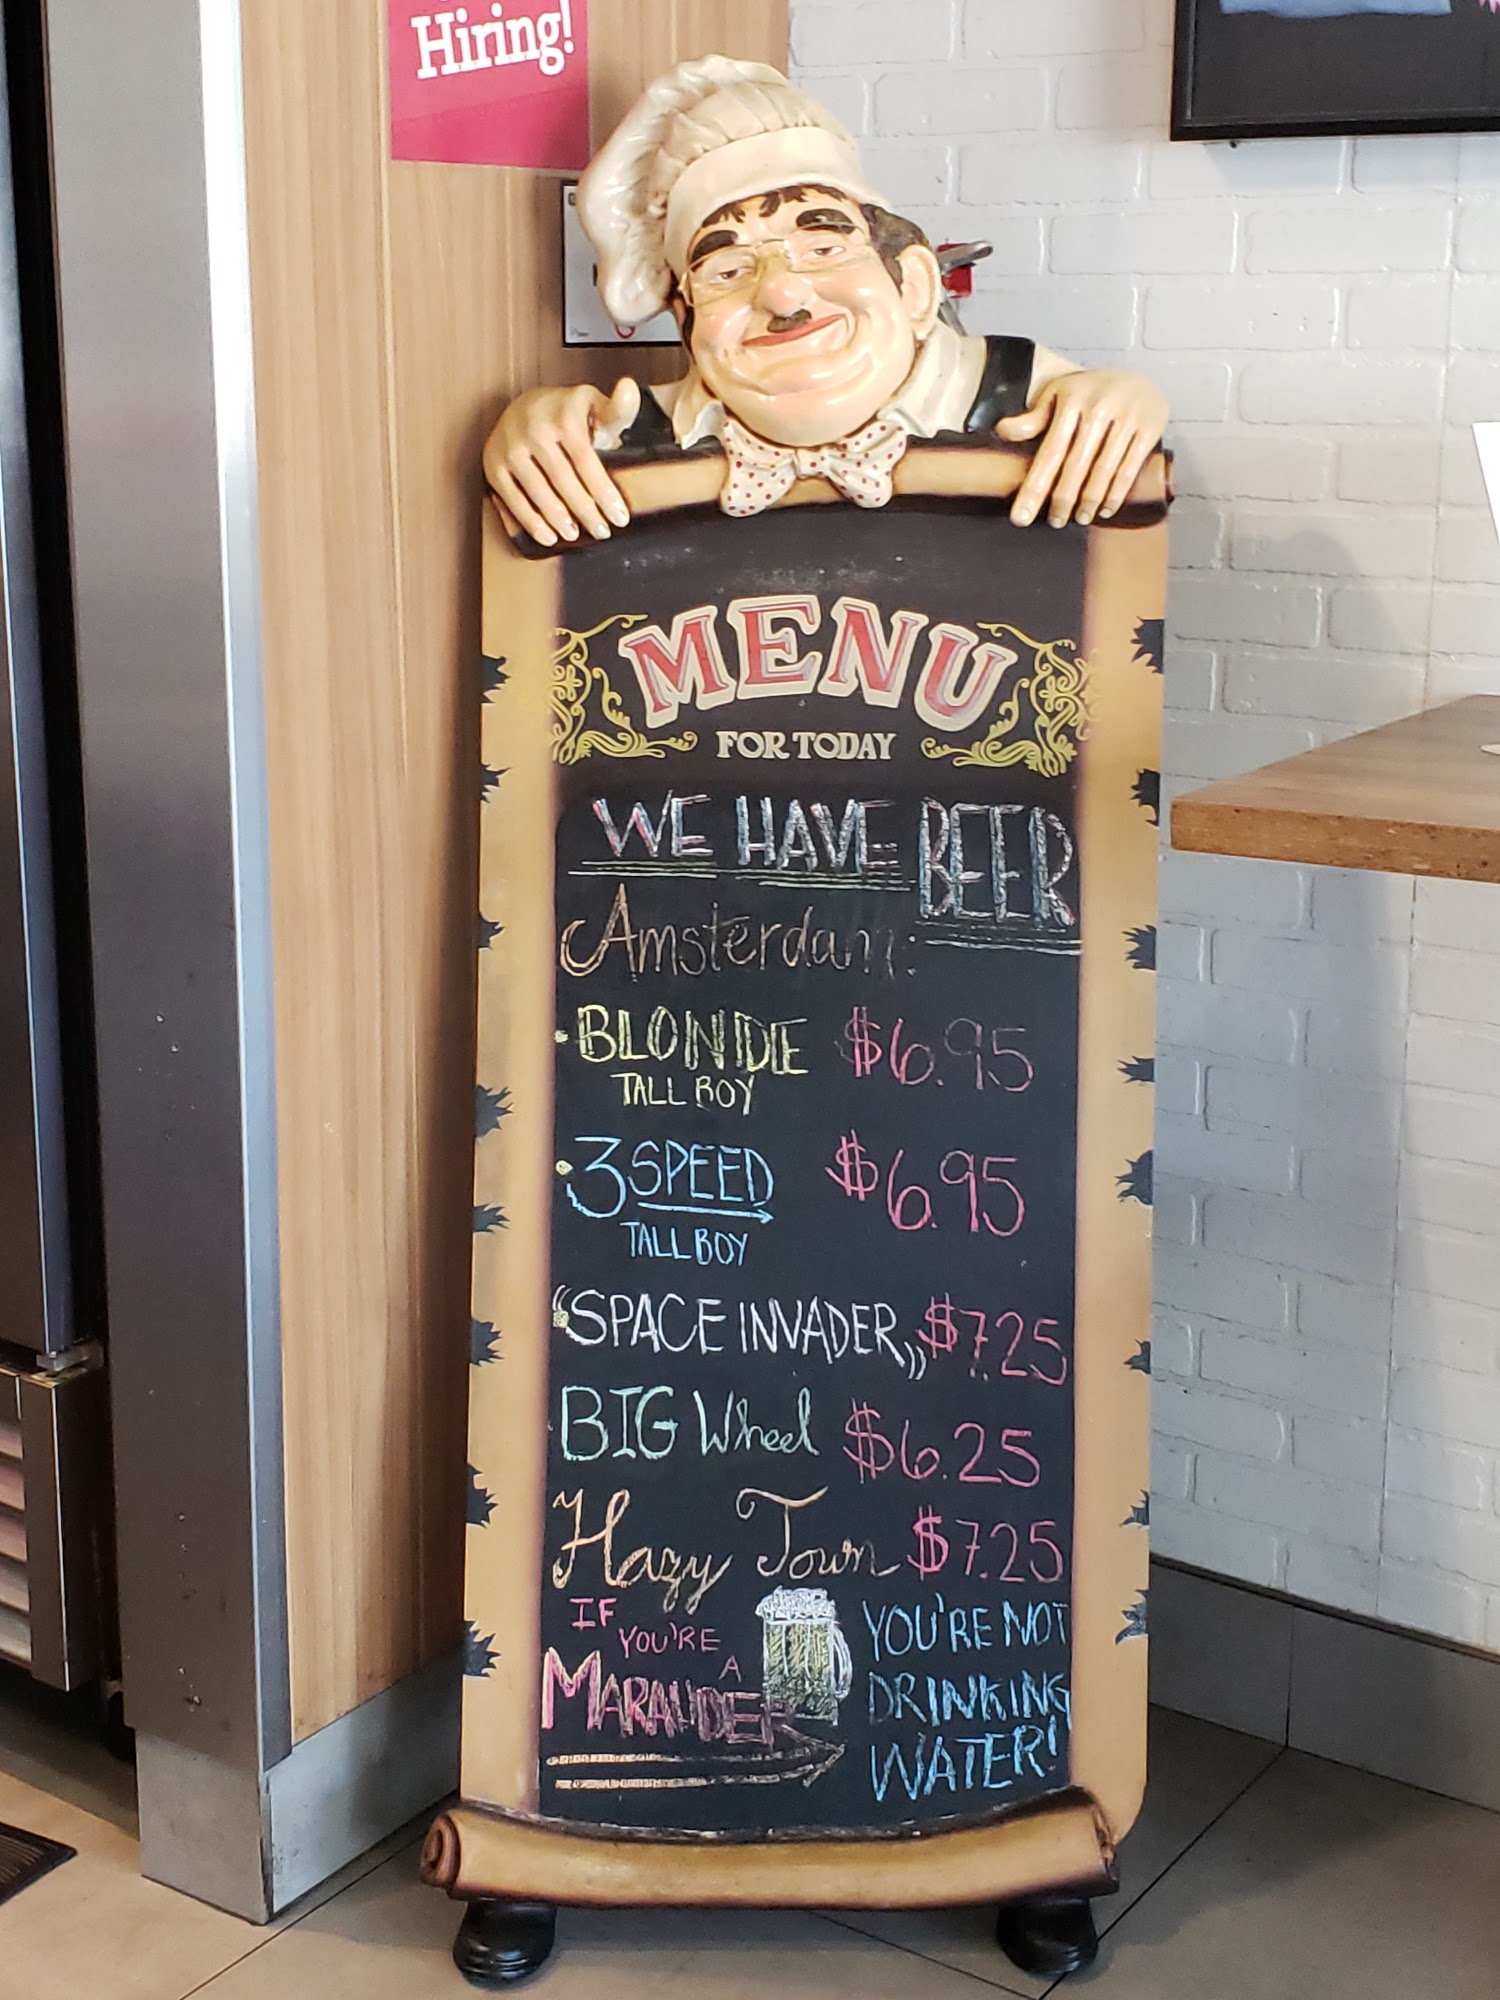 Hiring!
MENU
FOR TODAY
WE HAVE BEER
Amsterdam:
• BLONDE $6.95
TALL BOY
• 3 SPEED $6.95
TALL BOY
"SPACE INVADER" $7.25
BIG Wheel $6.25
Hazy Town $7.25
IF
YOU'RE
A
MARAUDER
YOU'RE NOT
DRINKING
WATER!